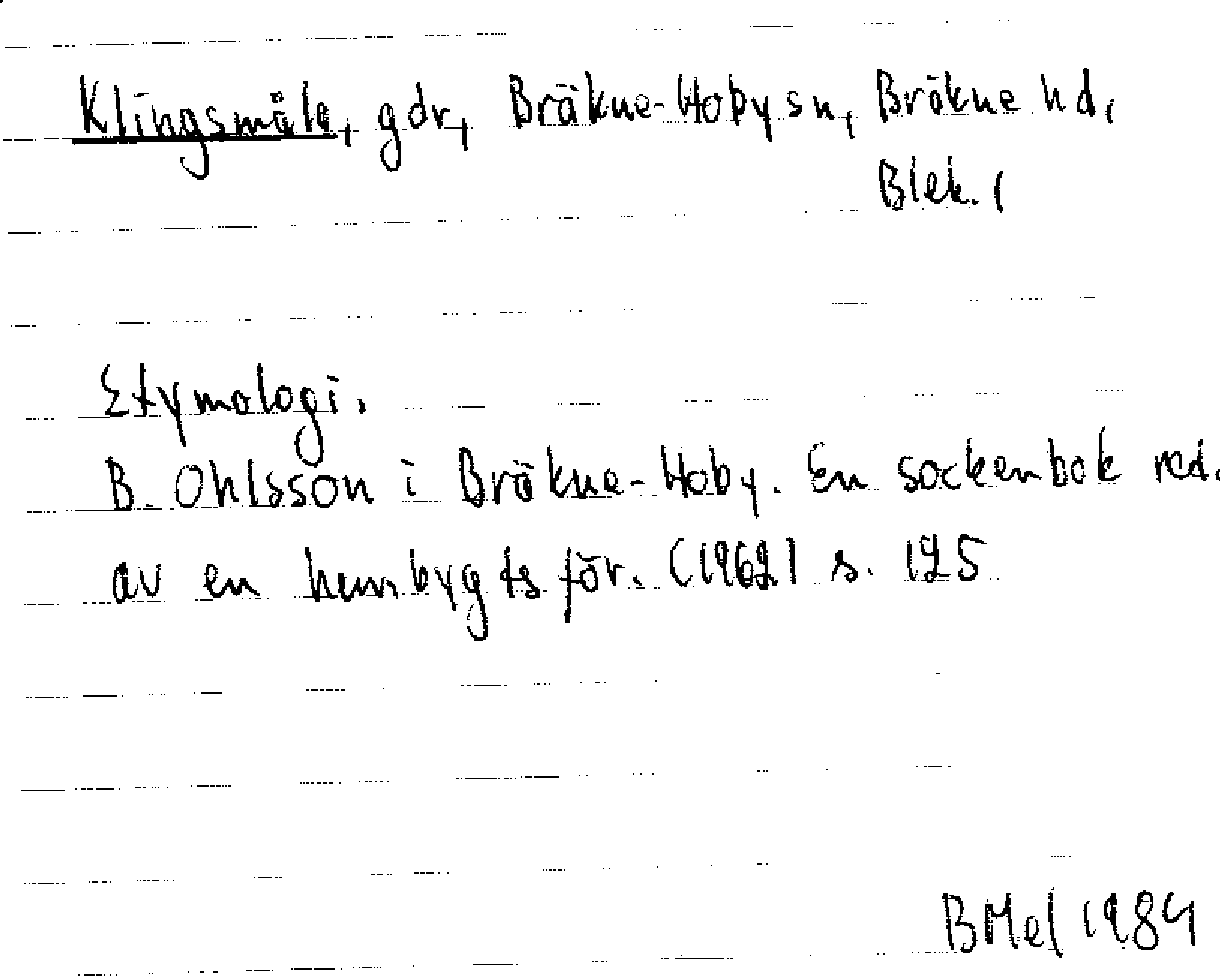 Klingsmåla, gdr, Bräkne-Hoby sn, Bräkne hd,
Blek. l
Etymologi.
B. Ohlsson i Bräkne-Hoby. En sockenbok red.
av en hembygdsför. (1962) s. 125
BMel 1984